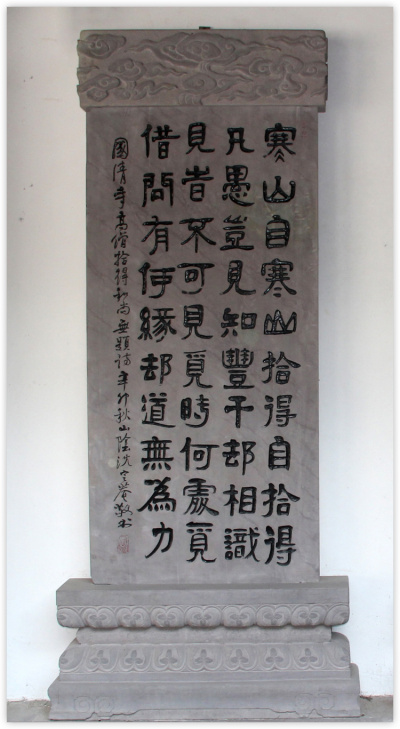 寒山自寒山拾得自拾得
凡愚豈見知豐干却相識
見旹不可見覓時何處覓
借問有何緣却道無為力
國清寺高僧拾得和尚無題詩辛卯秋山陰沈定菴敬书